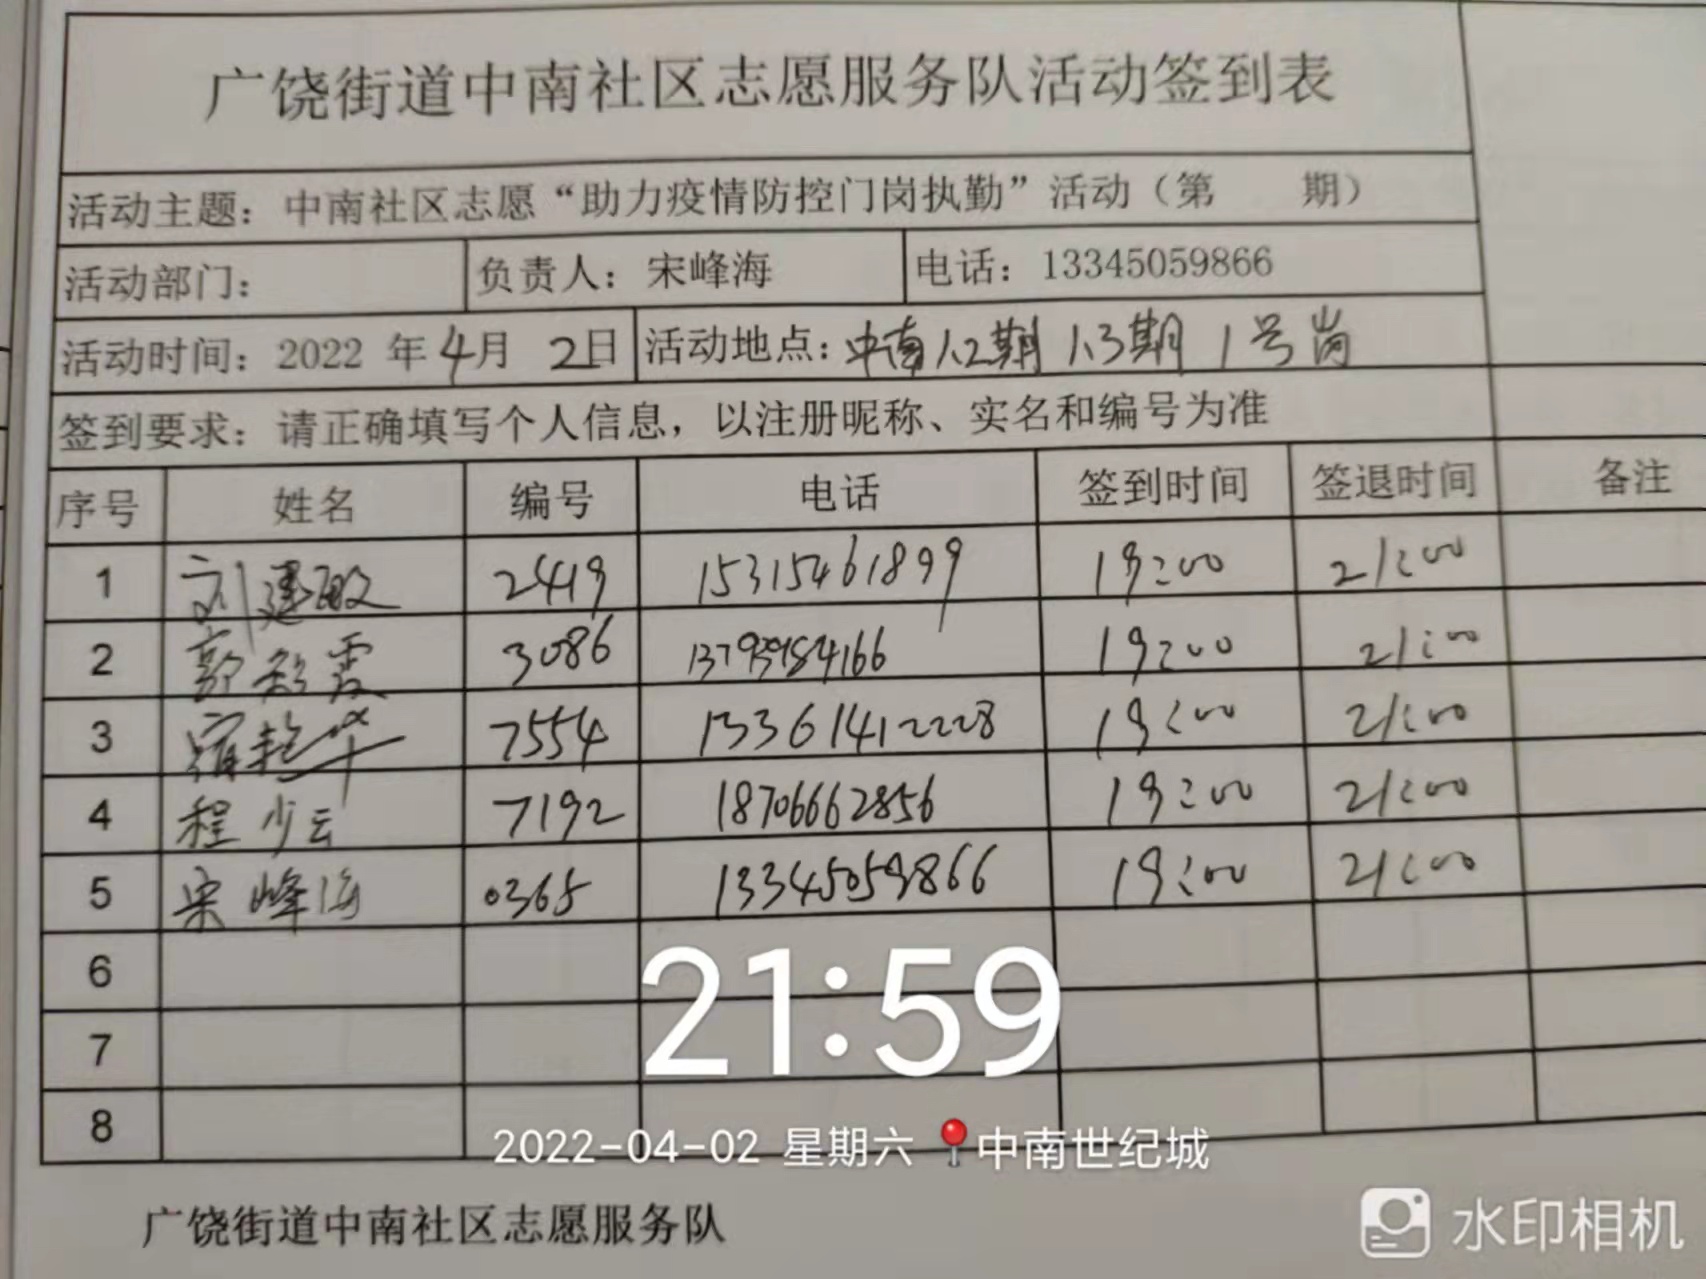 广饶街道中南社区志愿服务队活动签到表
活动主题：中南社区志愿“助力疫情防控门岗执勤”活动（第 期）
活动部门： 负责人：宋峰海 电话：13345059866
活动时间：2022 年 4月 2日 活动地点：中南1.2期 1.3期 1号岗
签到要求：请正确填写个人信息，以注册昵称、实名和编号为准
序号 姓名 编号 电话 签到时间 签退时间 备注
1 刘建敏 2419 15315461899 19:00 21:00
2 郭彩霞 3086 19:00 21:00
3 艳华 7554 13361412228 19:00 21:00
4 程少云 7192 18706662856 19:00 21:00
5 宋峰海 0365 13345059866 19:00 21:00
6
7
8
21:59
2022-04-02 星期六 中南世纪城
广饶街道中南社区志愿服务队
水印相机